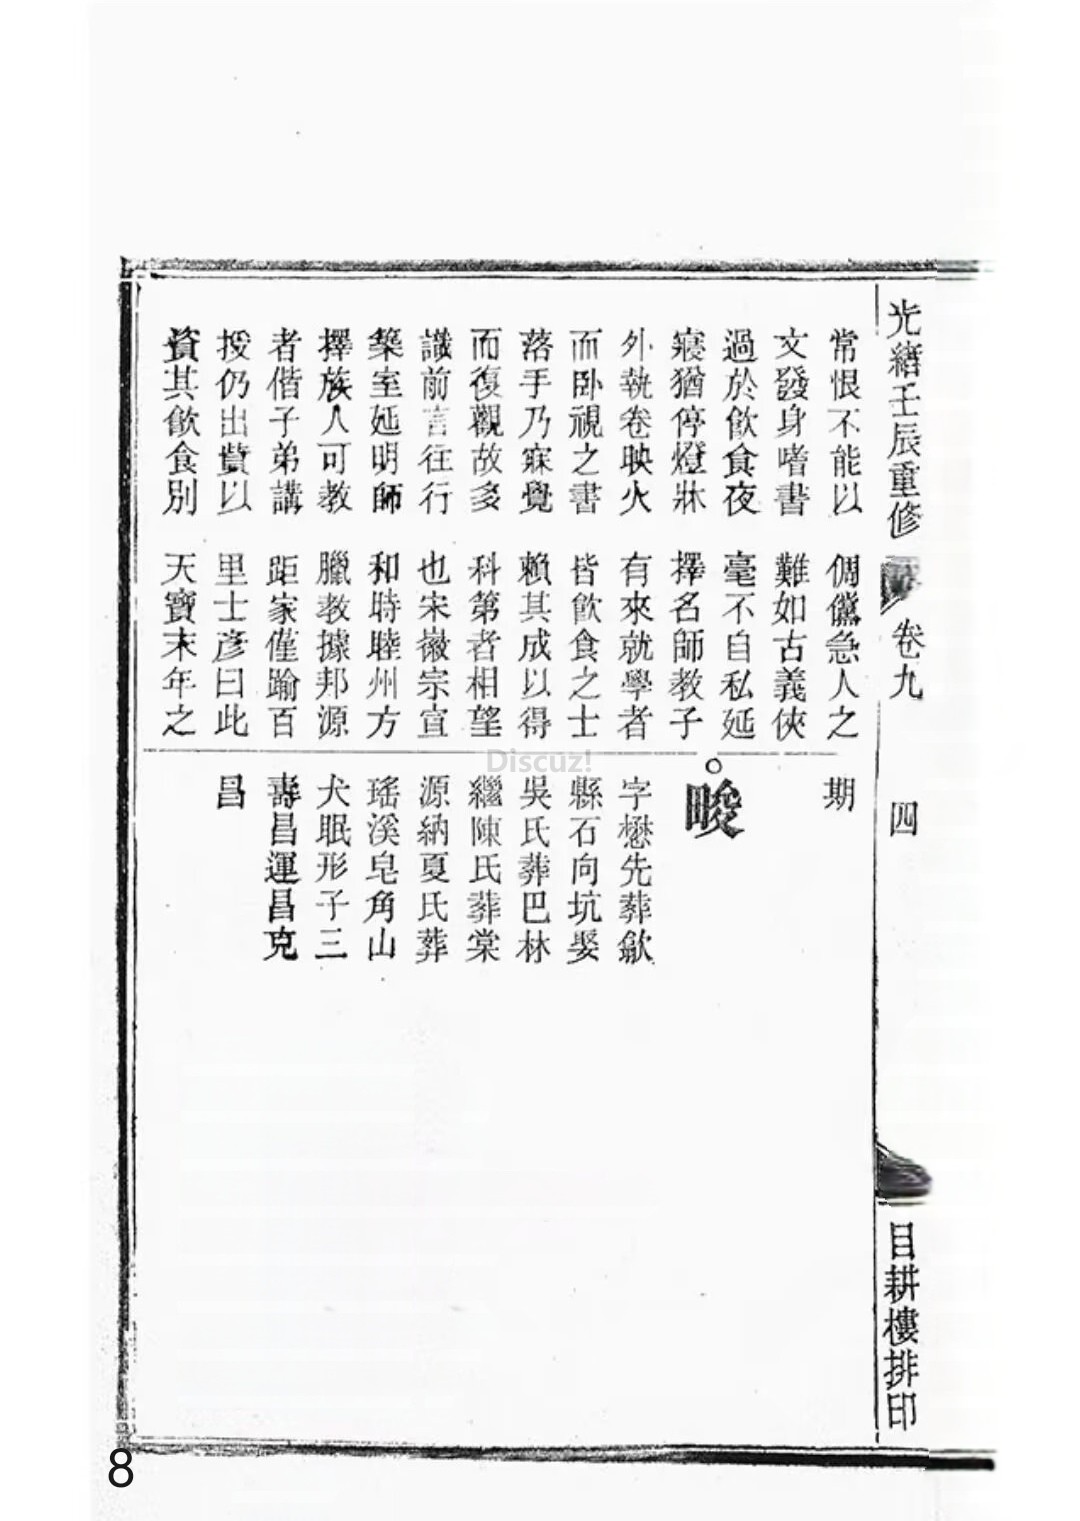 光緒壬辰重修
卷九
四
目耕樓排印
常恨不能以
文發身嗜書
過於飲食夜
寢猶停燈牀
外執卷映火
而卧視之書
落手乃寐覺
而復觀故多
識前言往行
築室延明師
擇族人可教
者偕子弟講
授仍出貲以
資其飲食別
倜儻急人之
難如古義俠
毫不自私延
擇名師教子
有來就學者
皆飲食之士
賴其成以得
科第者相望
也宋徽宗宣
和時睦州方
臘教據邦源
距家僅踰百
里士彥曰此
天寶末年之
期
畯
字懋先葬歙
縣石向坑娶
吳氏葬巴林
繼陳氏葬棠
源納夏氏葬
瑤溪皂角山
犬眠形子三
壽昌運昌克
昌
Discuz!
8